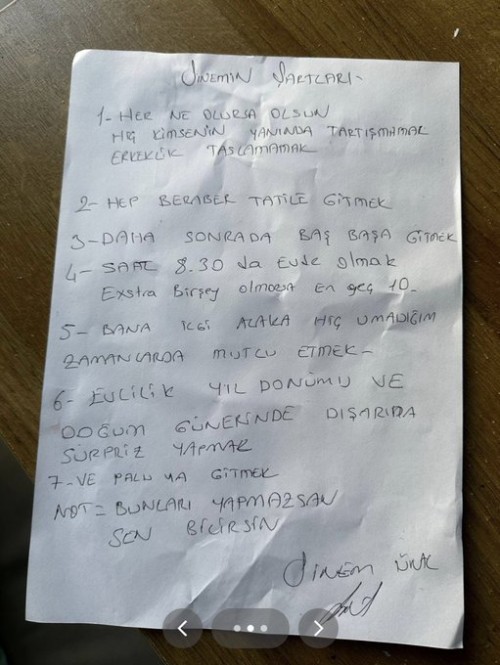 SİNEMİN ŞARTLARI-
1- HER NE OLURSA OLSUN
HİÇ KİMSENİN YANINDA TARTIŞMAMAK
ERKEKLİK TASLAMAMAK
2- HEP BERABER TATİLE GİTMEK
3- DAHA SONRADA BAŞ BAŞA GİTMEK
4- SAAT 8.30 da Evde olmak
Exstra Birşey olmazsa En geç 10-
5- BANA İLGİ ALAKA HİÇ UMADIĞIM
ZAMANLARDA MUTLU ETMEK-
6- EVLİLİK YIL DÖNÜMÜ VE
DOĞUM GÜNERİNDE DIŞARIDA
SÜRPRİZ YAPMAK
7- VE PALU YA GİTMEK
NOT = BUNLARI YAPMAZSAN
SEN BİLİRSİN
SİNEM